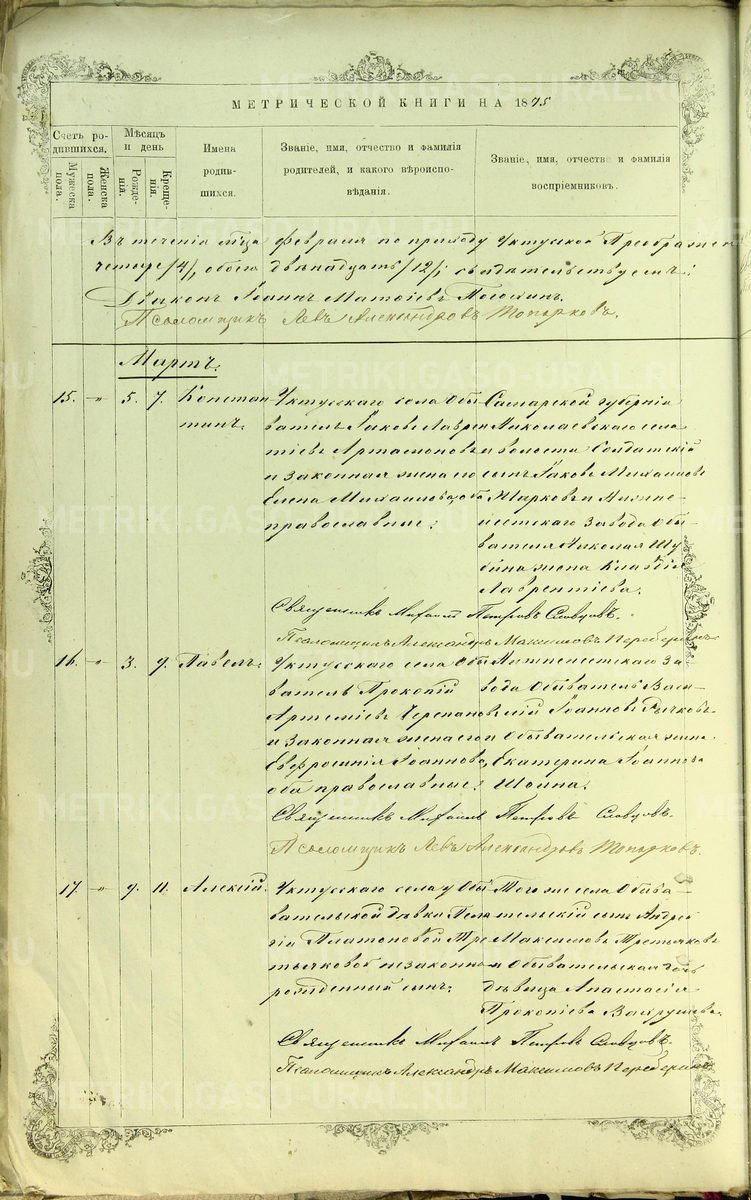 МЕТРИЧЕСКОЙ КНИГИ НА 1875
Счетъ родившихся.
Мужеска пола.
Женска пола.
Мѣсяцъ и день
Рожденія.
Крещенія.
Имена родившихся.
Званіе, имя, отчество и фамилія родителей, и какого вѣроисповѣданія.
Званіе, имя, отчество и фамилія воспріемниковъ.
Въ теченіи м-ца февраля по приходу Уктусской Преображен
четыре /4/, обоего двѣнадцать /12/; свидѣтельствуемъ:
Діаконъ Іоаннъ
Псаломщикъ Левъ Александровъ Топорковъ.
Мартъ.
15. -"- 5. 7. Констан
тинъ.
Уктусскаго села Обы
ватель Іаковъ Лаврен
тіевъ Артамоновъ
и законная жена его
Елена Михаилова, оба
православные;
Самарской губерніи
Николаевскаго
волости Солдатскій
сынъ Іаковъ Михаиловъ
Жарковъ и Нижне-
исетскаго завода Обы-
вателя Николая Шу
бина жена Клавдія
Лаврентіева.
Священникъ Михаилъ Петровъ Словцовъ.
Псаломщикъ Александръ Максимовъ
16. -"- 3. 9. Павелъ.
Уктусскаго села Обы
ватель Прокопій
Артеміевъ Черепановъ
и законная жена его
Евфросинія Іоаннова,
оба православные;
Нижнеисетскаго За
вода Обыватель Васи-
лій Іоанновъ Рычковъ
и Обывательская жена
Екатерина Іоаннова
Священникъ Михаилъ Петровъ Словцовъ.
Псаломщикъ Левъ Александровъ Топорковъ.
17. -"- 9. 11. Алексій.
Уктусскаго села у Обы
вательской дѣвки Пела
гіи Платоновой Тре
тьяковой незаконно-
рожденный сынъ;
Того же села Обыва-
тельскій сынъ Андрей
Максимовъ Третьяковъ
и Обывательская дочь
дѣвица Анастасія
Прокопіева Вахрушева.
Священникъ Михаилъ Петровъ Словцовъ.
Псаломщикъ Александръ Максимовъ
METRIKI.GASO-URAL.RU